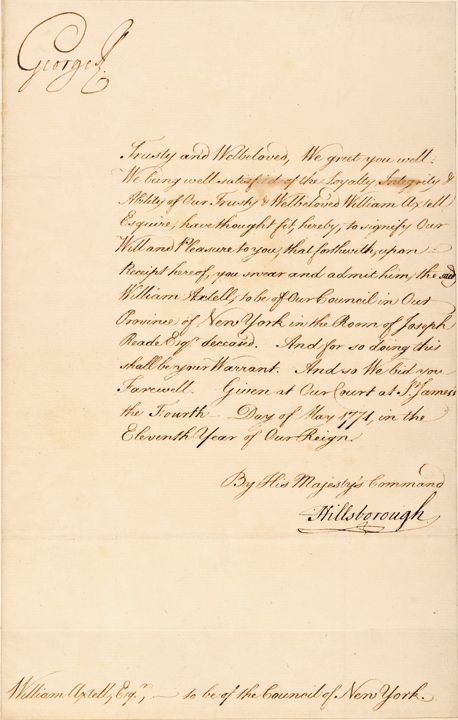 George R
Trusty and Welbeloved, We greet you well.
We being well satisfied of the Loyalty Integrity &
Ability of Our Trusty & Welbeloved William Axtell
Esquire, have thought fit, hereby, to signify Our
Will and Pleasure to you, that forthwith, upon
Receipt hereof, you swear and admit him, the said
William Axtell, to be of Our Council in Our
Province of New York in the Room of Joseph
Reade Esqr. deceas'd. And for so doing this
shall be your Warrant. And so We bid you
Farewell. Given at Our Court at St. James's
the Fourth Day of May 1771, in the
Eleventh Year of Our Reign
By His Majesty's Command
Hillsborough
William Axtell, Esqr., — to be of the Council of New York.